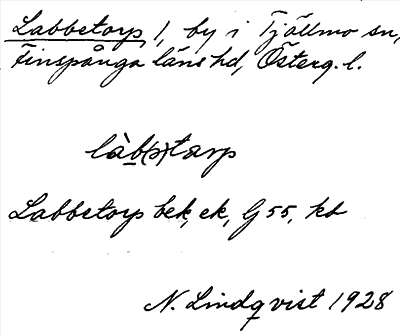 Labbetorp 1, by i Tjällmo sn,
Finspånga läns hd, Österg. l.
làb(p)tarp
Labbetorp bek, ek, G 55, kb
N. Lindqvist 1928